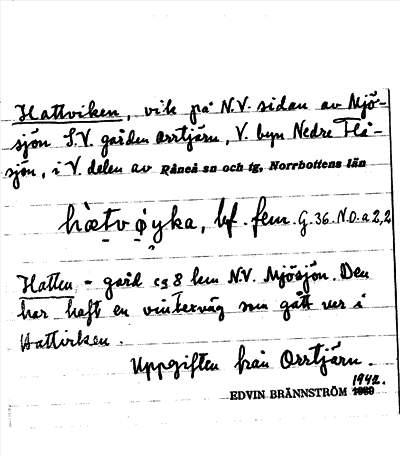 Hattviken, vik på N.V. sidan av Mjö-
sjön S.V. gården Orrtjärn, V. byn Nedre Flå-
sjön, i V. delen av Råneå sn och tg, Norrbottens län
hætv øyka, bf. fem. G. 36. N.O. a 2,2
Hatten, - gård ca 8 km N.V. Mjösjön. Den
har haft en vinterväg som gått ner i
Hattviken.
Uppgiften från Orrtjärn.
1942.
EDVIN BRÄNNSTRÖM